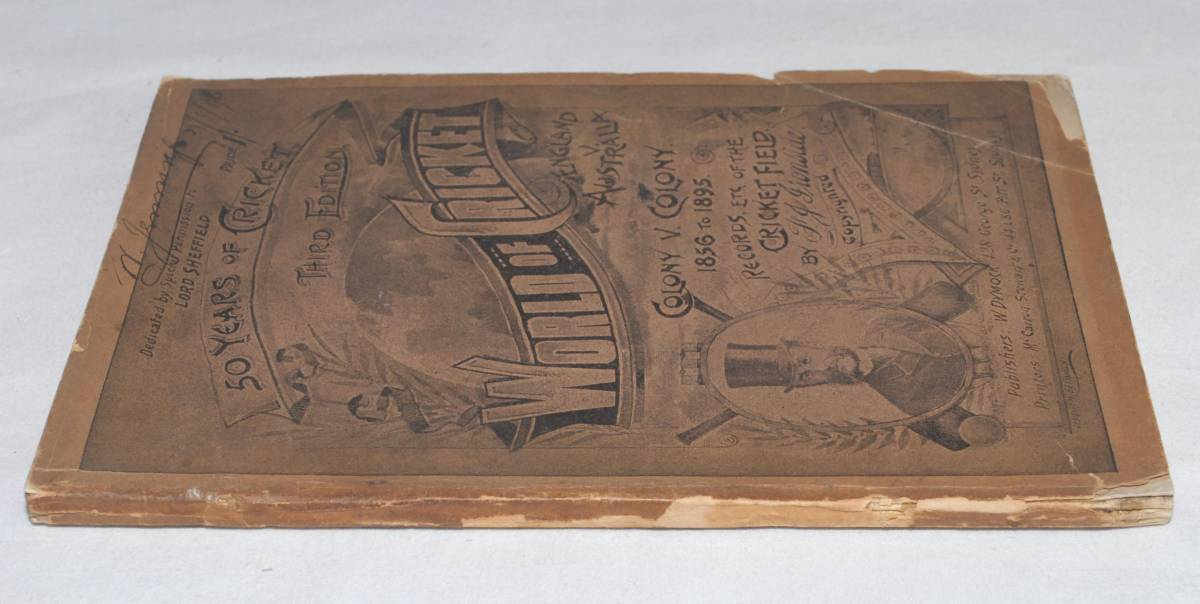 Price 1/-
Dedicated by Special Permission to
LORD SHEFFIELD
50 YEARS OF CRICKET
THIRD EDITION
WORLD OF CRICKET
ENGLAND
V.
AUSTRALIA
COLONY V. COLONY.
1856 TO 1895.
RECORDS, ETC OF THE
CRICKET FIELD.
BY
COPYRIGHTED
Publishers W DYMOCK George St Sydney
Printers McCarron Stewart & Co Pitt St Sydney